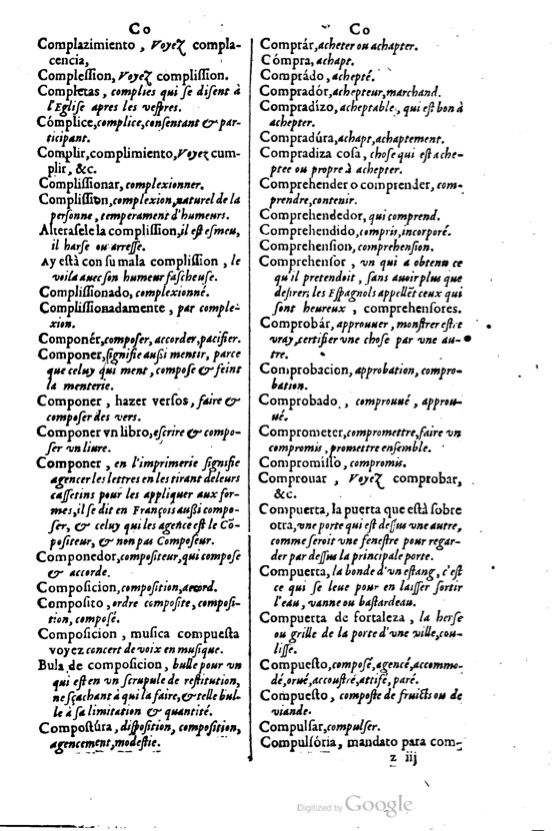 Co
Complazimiento, Voyez compla-
cencia,
Complession, Voyez complission.
Completas, complies qui se disent à
l'Eglise apres les vespres.
Cómplice, complice, consentant & par-
ticipant.
Complir, complimiento, Voyez cum-
plir, &c.
Complissionar, complexionner.
Complission, complexion, naturel de la
personne, temperament d'humeurs.
Alterasele la complission, il est esmeu,
il harse ou arresse.
Ay está con su mala complission, le
voila auec son humeur fascheuse.
Complissionado, complexionné.
Complissionadamente, par comple-
xion.
Componér, composer, accorder, pacifier.
Componer, signifie aussi mentir, parce
que celuy qui ment, compose & feint
la menterie.
Componer, hazer versos, faire &
composer des vers.
Componer vn libro, escrire & compo-
ser vn liure.
Componer, en l'imprimerie signifie
agencer les lettres en les tirant de leurs
cassetins pour les appliquer aux for-
mes, il se dit en François aussi compo-
ser, & celuy qui les agence est le Cõ-
positeur, & non pas Composeur.
Componedor, compositeur, qui compose
& accorde.
Composicion, composition, accord.
Composito, ordre composite, composi-
tion, composé.
Composicion, musica compuesta
voyez concert de voix en musique.
Bula de composicion, bulle pour vn
qui est en vn scrupule de restitution,
ne sçachant à qui la faire, & telle bul-
le à sa limitation & quantité.
Compostúra, disposition, composition,
agencement, modestie.
Co
Comprár, acheter ou achapter.
Cómpra, achapt.
Comprádo, achepté.
Compradór, achepteur, marchand.
Compradízo, acheptable, qui est bon à
achepter.
Compradúra, achapt, achaptement.
Compradiza cosa, chose qui est ache-
ptee ou propre à achepter.
Comprehender o comprender, com-
prendre, contenir.
Comprehendedor, qui comprend.
Comprehendido, compris, incorporé.
Comprehension, comprehension.
Comprehensor, vn qui a obtenu ce
qu'il pretendoit, sans auoir plus que
desirer, les Espagnols appellẽt ceux qui
sont heureux, comprehensores.
Comprobár, approuuer, monstrer estre
vray, certifier vne chose par vne au-
tre.
Comprobacion, approbation, compro-
bation.
Comprobado, comprouué, approu-
ué.
Comprometer, compromettre, faire vn
compromis, promettre ensemble.
Compromisso, compromis.
Comprouar, Voyez comprobar,
&c.
Compuerta, la puerta que está sobre
otra, vne porte qui est dessus vne autre,
comme seroit vne fenestre pour regar-
der par dessus la principale porte.
Compuerta, la bonde d'vn estang, c'est
ce qui se leue pour en laisser sortir
l'eau, vanne ou bastardeau.
Compuerta de fortaleza, la herse
ou grille de la porte d'vne ville, cou-
lisse.
Compuesto, composé, agencé, accommo-
dé, orné, accoustré, attifé, paré.
Compuesto, composte de fruicts ou de
viande.
Compulsar, compulser.
Compulsória, mandato para com-
z iij
Digitized by Google